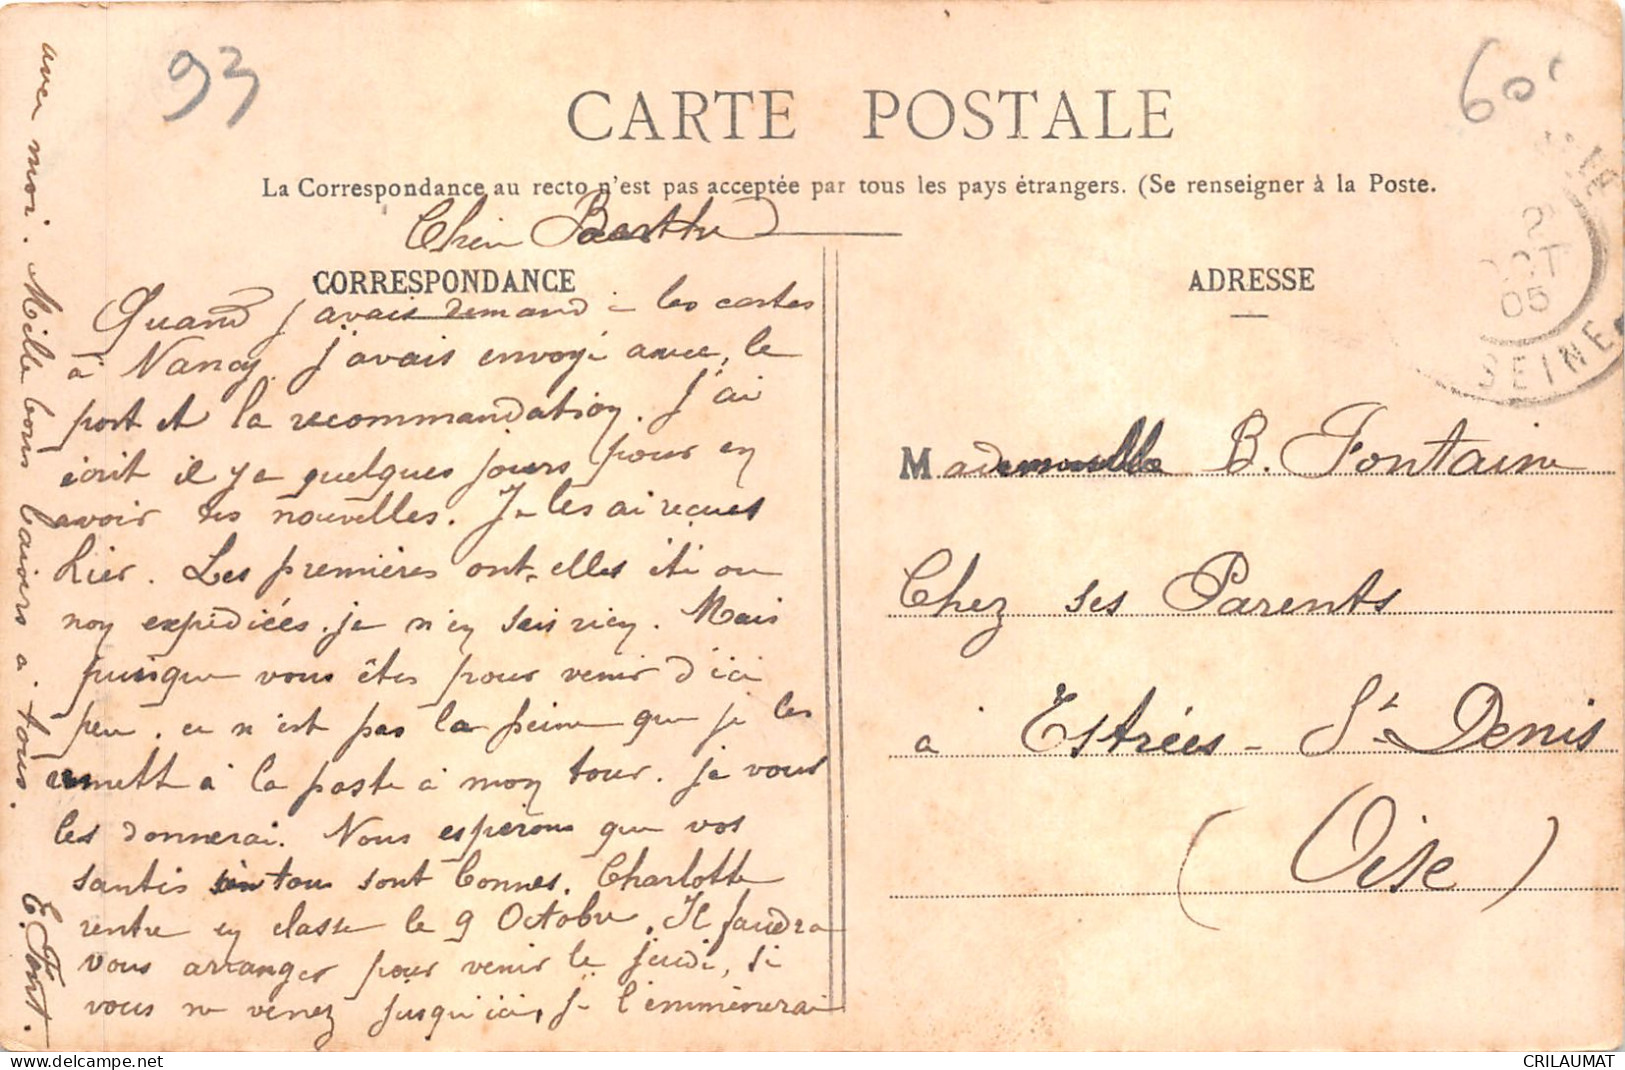 93
60
CARTE POSTALE
La Correspondance au recto n'est pas acceptée par tous les pays étrangers. (Se renseigner à la Poste.
2
OCT
05
SEINE
CORRESPONDANCE
ADRESSE
Chère Berthe
Quand j'avais demandé les cartes
à Nancy. J'avais envoyé avec, le
port et la recommandation. J'ai
écrit il y a quelques jours pour en
avoir des nouvelles. Je les ai reçues
hier. Les premières ont-elles été ou
non expédiées. je n'en sais rien. Mais
puisque vous êtes pour venir d'ici
peu. ce n'est pas la peine que je les
remette à la poste à mon tour. je vous
les donnerai. Nous espérons que vos
santés à tous sont bonnes. Charlotte
rentre en classe le 9 Octobre. Il faudra
vous arranger pour venir le jeudi, si
vous ne venez jusqu'ici, je l'emmènerai
avec moi. Mille bons baisers à tous.
E. Font.
Mademoiselle B. Fontaine
Chez ses Parents
à Estrées-St-Denis
(Oise)
www.delcampe.net
CRILAUMAT